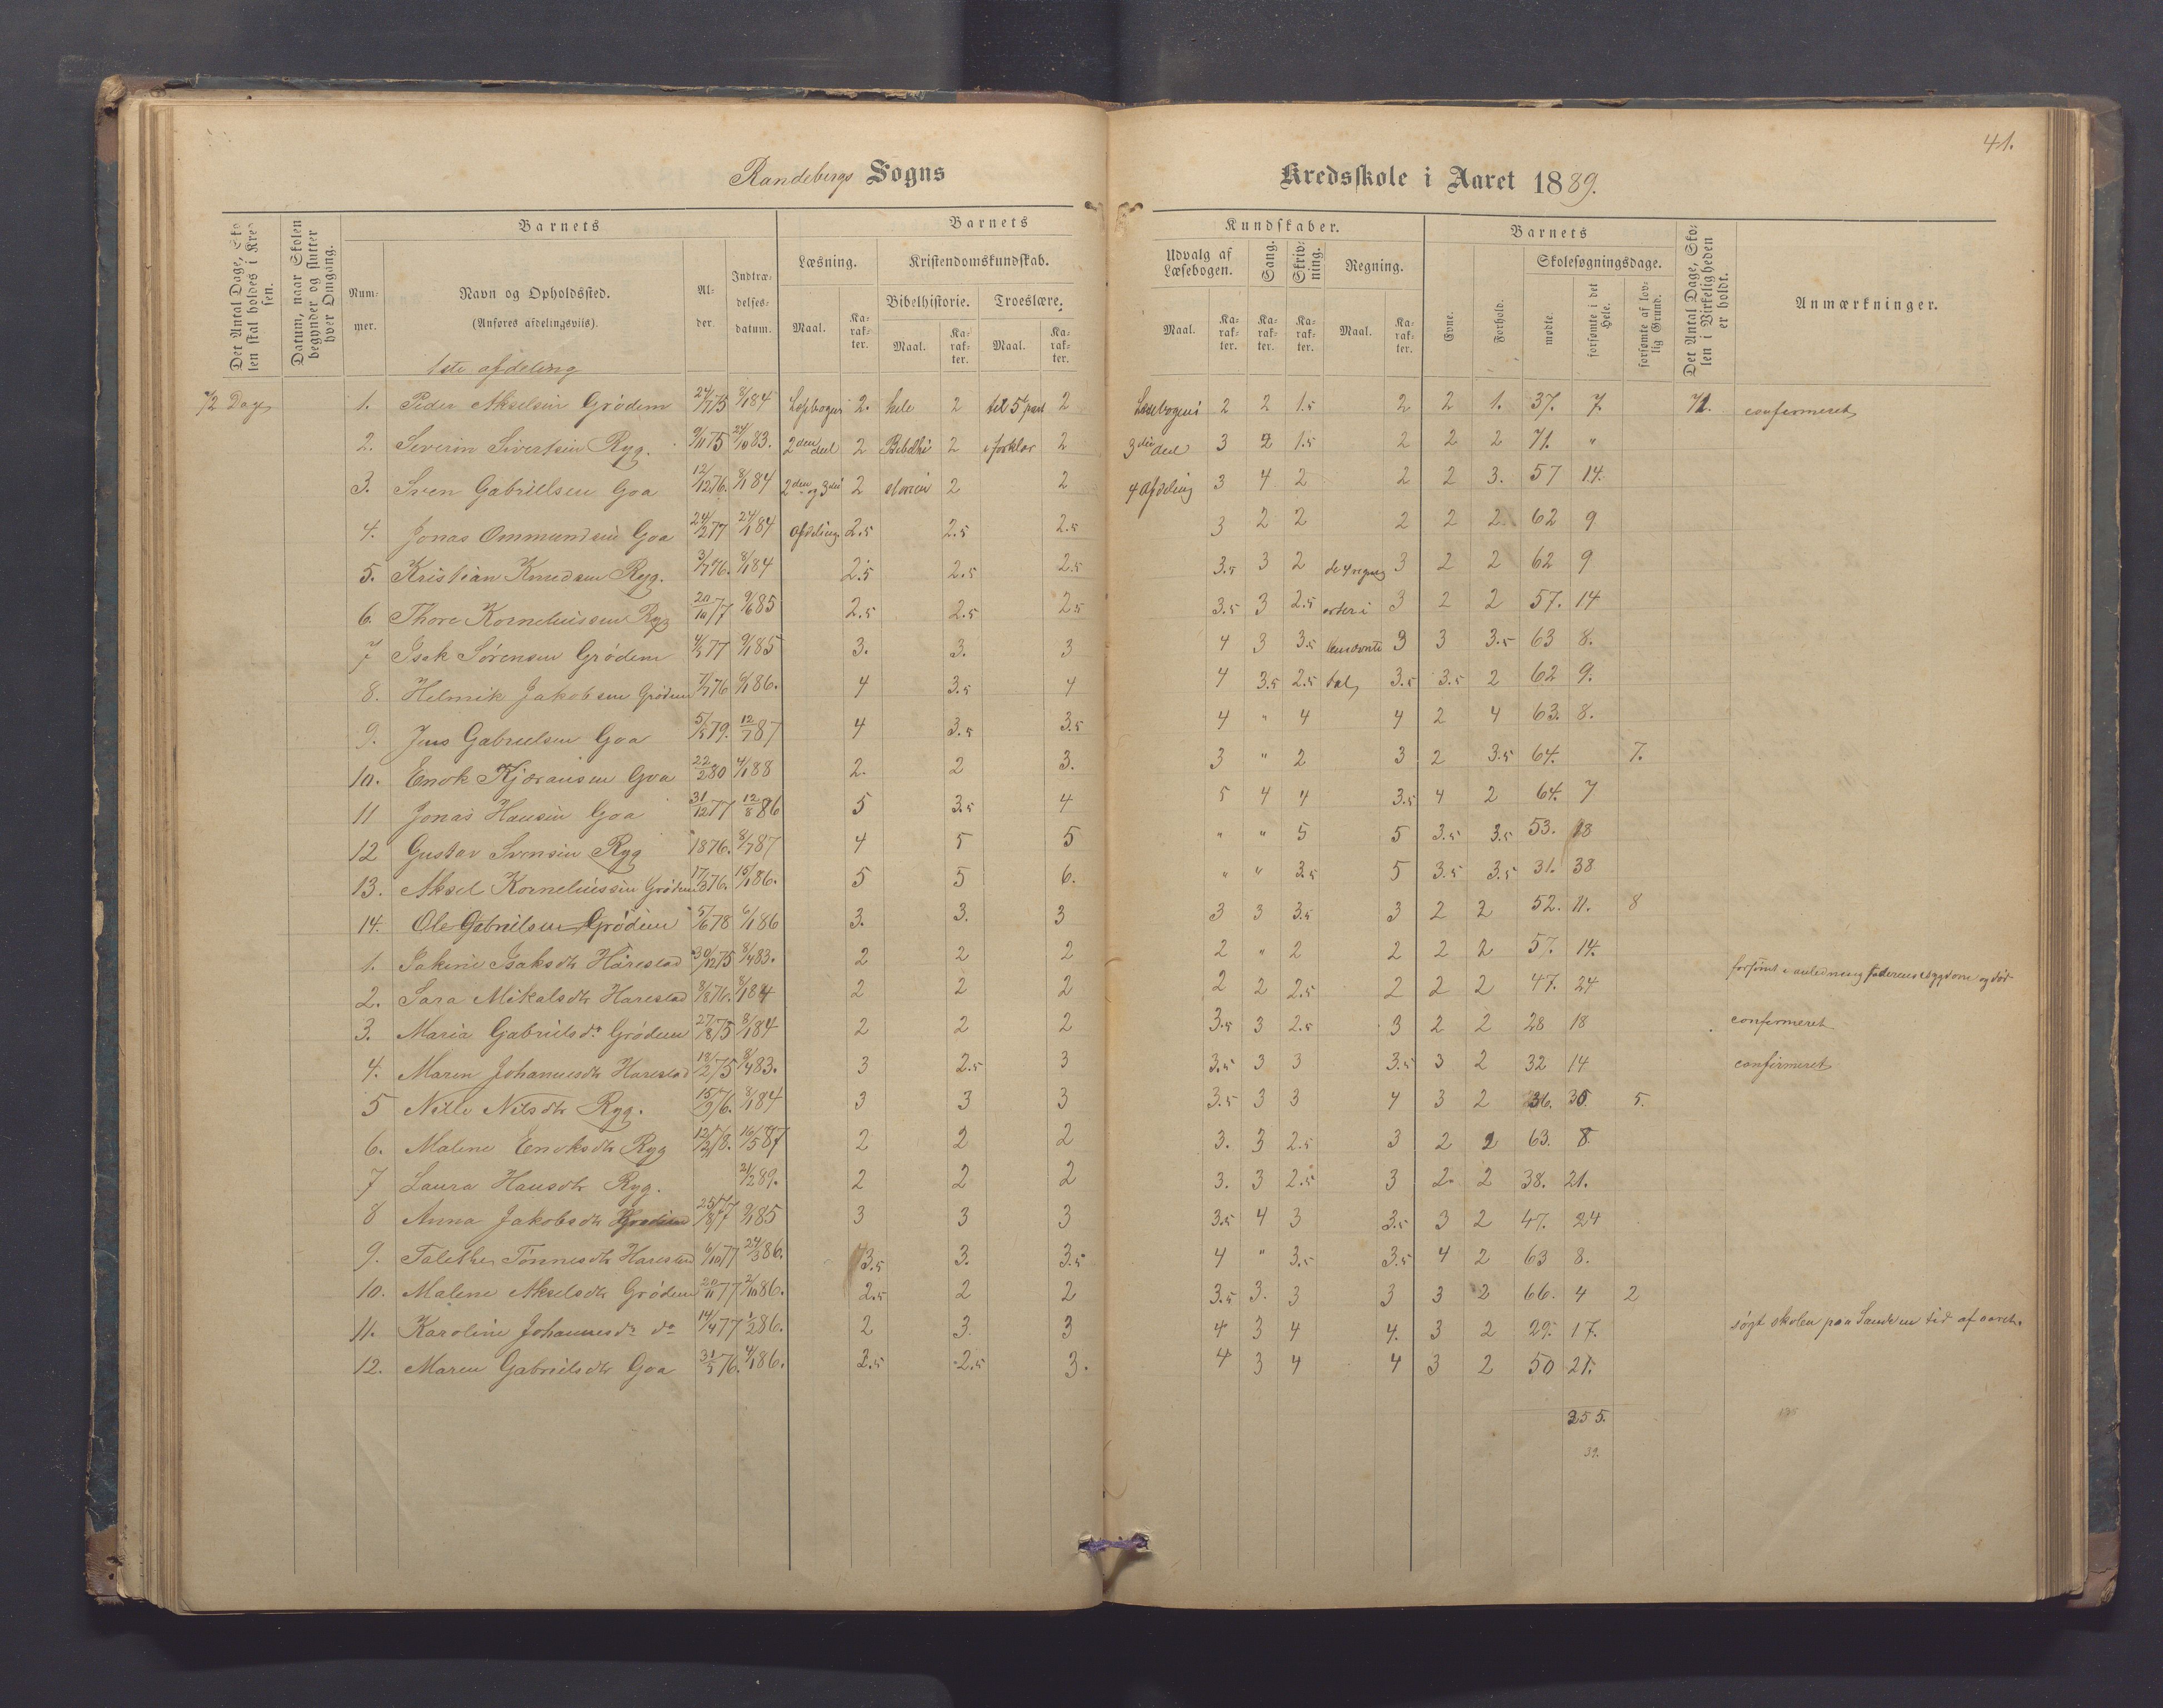 41.
Randebergs Sogns Kredsskole i Aaret 1889.
Det Antal Dage, Skolen skal holdes i Kredsen.
Datum, naar Skolen begynder og slutter hver Omgang.
Barnets
Nummer.
Navn og Opholdssted.
(Anføres afdelingsviis).
Alder.
Indtrædelsesdatum.
Barnets
Læsning.
Maal.
Karakter.
Kristendomskundskab.
Bibelhistorie.
Troeslære.
Maal.
Karakter.
Maal.
Karakter.
Kundskaber.
Udvalg af Læsebogen.
Maal.
Karakter.
Sang.
Karakter.
Skrivning.
Karakter.
Regning.
Maal.
Karakter.
Barnets
Evne.
Forhold.
Skolesøgningsdage.
mødte.
forsømte i det Hele.
forsømte af lovlig Grund.
Det Antal Dage, Skolen i Virkeligheden er holdt.
Anmærkninger.
1ste afdeling
72 Dage 1. Peder Akselsen Grødem 24/7 75 8/1 84 Læsebogens 2. hele 2 til 5te part 2 Læsebogens 2 2 1.5 2 2 1. 37. 7. 71. confermeret
2. Severin Sivertsen Ryg. 9/11 75 24/10 83. 2den deel 2 Bibelhi 2 i forklar 2 3die deel 3 2 1.5 2 2 2 71. "
3. Sven Gabrielsen Goa 12/12 76. 8/1 84 2den og 3die 2 storien 2 2 4 Afdeling 3 4 2 2 2 3. 57 14.
4. Jonas Ommundsen Goa 24/2 77 24/1 84 Afdeling 2.5 2.5 2.5 3 2 2 2 2 2. 62 9
5. Kristian Knudsen Ryg. 3/7 76. 8/1 84 2.5 2.5 2.5 3.5 3 2 de 4 regnings 3 2 2 62 9
6. Thore Korneliussen Ryg 20/10 77 9/6 85 2.5 2.5 2.5 3.5 3 2.5 arter i 3 2 2 57. 14
7 Isak Sørensen Grødem 4/5 77 9/1 85 3. 3. 3 4 3 3.5 benævnte 3 3 3.5 63 8.
8. Helmik Jakobsen Grødem 7/7 76 9/1 86. 4 3.5 4 4 3.5 2.5 tal 3.5 3.5 2 62 9.
9. Jens Gabrielsen Goa 5/5 79. 12/7 87 4 3.5 3.5 4 " 4 4 2 4 63. 8.
10. Enok Kjøransen Goa 22/2 80 4/1 88 2. 2 3. 3 " 2 3 2 3.5 64. 7.
11 Jonas Hansen Goa 31/12 77 12/8 86 5 3.5 4 5 4 4 3.5 4 2 64. 7
12 Gustav Svensen Ryg 1876. 8/7 87 4 5 5 " " 5 5 3.5 3.5 53. 18
13. Aksel Korneliussen Grødem 17/3 76. 15/1 86. 5 5 6. " " 3.5 5 3.5 3.5 31. 38
14. Ole Gabrielsen Grødem 5/6 78 6/1 86 3. 3. 3 3 3 3.5 3 2 2 52. 11. 8
1. Sakine Isaksdtr Harestad 30/12 75 8/4 83. 2 2 2 2 " 2 2 2 2 57. 14.
2. Sara Mikalsdtr Harestad 8/8 76. 8/1 84 2 2 2 2 2 2.5 2 2 2 47. 24 forsømt i anledning faderens sygdom og død
3. Maria Gabrielsdr. Grødem 27/8 75 8/1 84 2 2 2 3.5 3 2.5 3 2 2 28 18 confermeret
4. Maren Johannesdtr Harestad 18/2 75 8/4 83. 3 2.5 3 3.5 3 3 3.5 3 2 32 14 confirmeret
5 Nille Nilsdtr Ryg. 15/3 76. 8/1 84 3 3 3 3.5 3 3 4 3 2 36. 30 5.
6. Malene Enoksdtr Ryg 12/2 78. 16/5 87 2 2 2 3. 3 2.5 3 2 2 63. 8
7 Laura Hansdtr Ryg. 2/2 89. 2 2 2 3. 3 2.5 3 2. 2 38. 21.
8 Anna Jakobsdtr Grødem 25/8 77 9/1 85 3 3 3 3.5 4 3 3.5 3 2 47. 24
9. Talethe Tønnesdtr Harestad 6/10 77 24/3 86. 3.5 3. 3.5 4 " 3.5 3.5 4 2 63 8.
10. Malene Akselsdtr Grødem 20/11 77 2/10 86. 2.5 2 2 3.5 3. 3 3 3 2 66. 4 2
11. Karoline Johannesdr do 14/4 77 1/2 86. 2 3 3 4 3 4 4. 3 2 29. 17. søgt skolen paa Sande en tid af aaret.
12. Maren Gabrielsdtr Goa 31/5 76. 4/1 86. 2.5 2.5 3. 4 3 4 4 3 2 50 21.
355.
39.